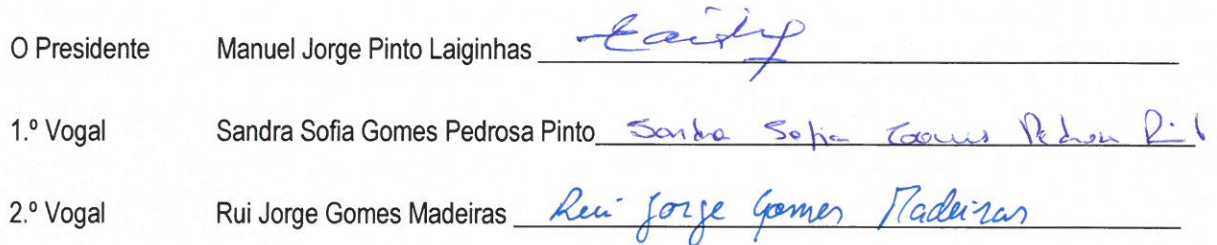 O Presidente Manuel Jorge Pinto Laiginhas
1.º Vogal Sandra Sofia Gomes Pedrosa Pinto Sandra Sofia Gomes Pedrosa Pinto
2.º Vogal Rui Jorge Gomes Madeiras Rui Jorge Gomes Madeiras